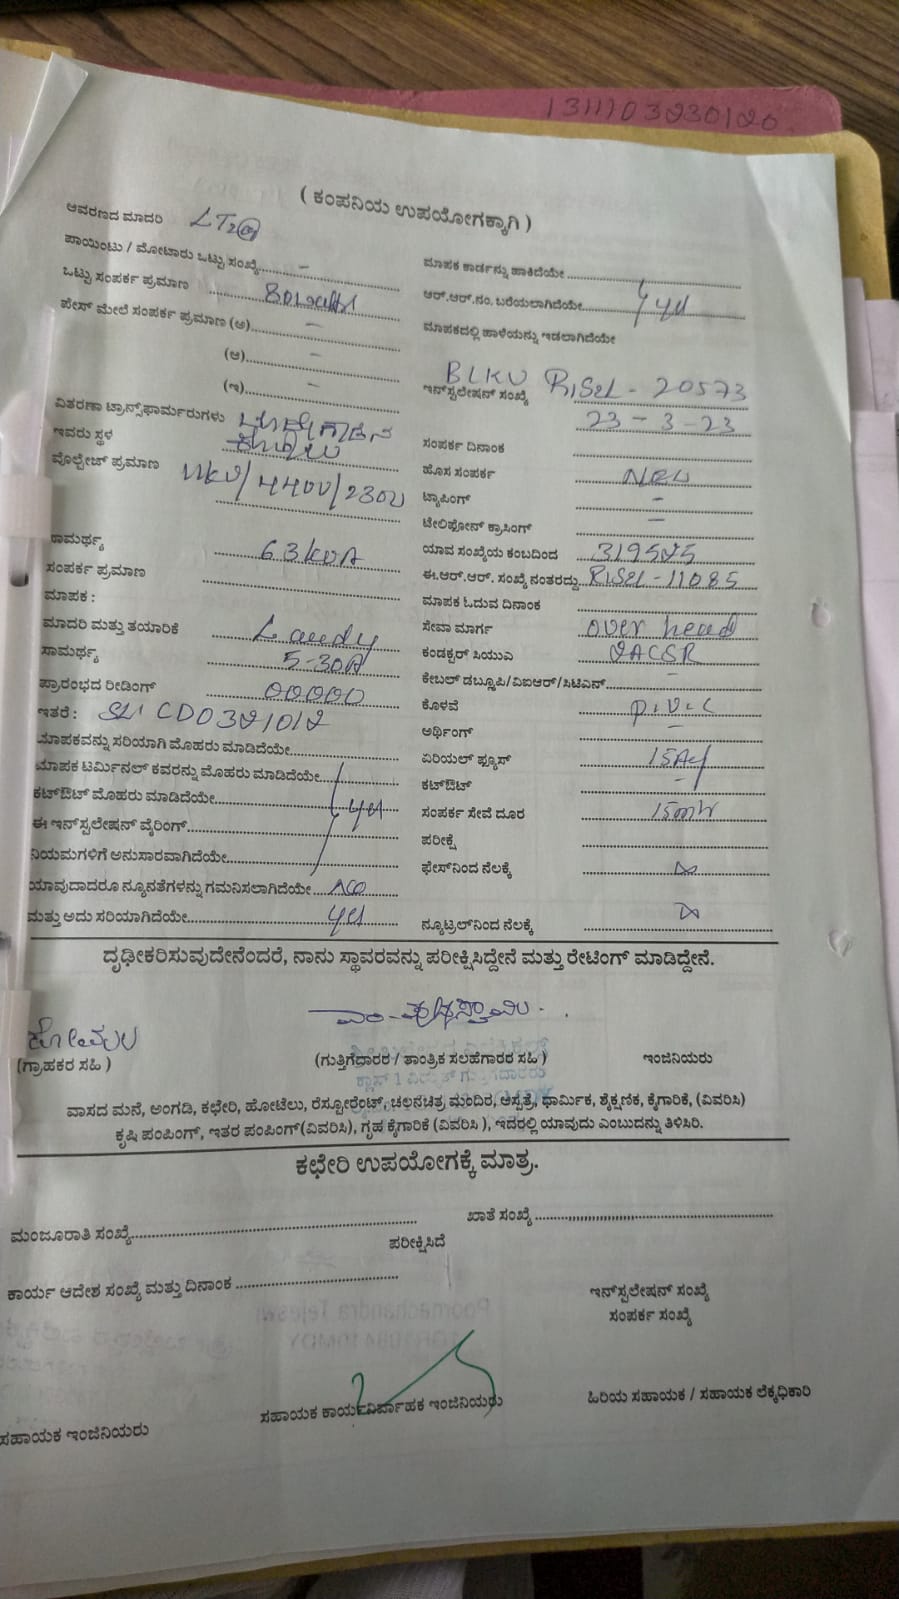 1311103230120
( ಕಂಪನಿಯ ಉಪಯೋಗಕ್ಕಾಗಿ )
ಆವರಣದ ಮಾದರಿ LT2(a)
ಪಾಯಿಂಟು / ಮೋಟಾರು ಒಟ್ಟು ಸಂಖ್ಯೆ -
ಒಟ್ಟು ಸಂಪರ್ಕ ಪ್ರಮಾಣ
ಪೇಸ್ ಮೇಲೆ ಸಂಪರ್ಕ ಪ್ರಮಾಣ (ಅ) -
(ಆ) -
(ಇ) -
ವಿತರಣಾ ಟ್ರಾನ್ಸ್‌ಫಾರ್ಮರುಗಳು
ಇವರು ಸ್ಥಳ
ವೊಲ್ಟೇಜ್ ಪ್ರಮಾಣ 11KV/440V/230V
ಸಾಮರ್ಥ್ಯ 63KVA
ಸಂಪರ್ಕ ಪ್ರಮಾಣ
ಮಾಪಕ :
ಮಾದರಿ ಮತ್ತು ತಯಾರಿಕೆ
ಸಾಮರ್ಥ್ಯ 5-30A
ಪ್ರಾರಂಭದ ರೀಡಿಂಗ್ 00000
ಇತರೆ :
ಮಾಪಕವನ್ನು ಸರಿಯಾಗಿ ಮೊಹರು ಮಾಡಿದೆಯೇ
ಮಾಪಕ ಟರ್ಮಿನಲ್ ಕವರನ್ನು ಮೊಹರು ಮಾಡಿದೆಯೇ
ಕಟ್‌ಔಟ್ ಮೊಹರು ಮಾಡಿದೆಯೇ
ಈ ಇನ್‌ಸ್ಟಲೇಷನ್ ವೈರಿಂಗ್
ನಿಯಮಗಳಿಗೆ ಅನುಸಾರವಾಗಿದೆಯೇ
ಯಾವುದಾದರೂ ನ್ಯೂನತೆಗಳನ್ನು ಗಮನಿಸಲಾಗಿದೆಯೇ
ಮತ್ತು ಅದು ಸರಿಯಾಗಿದೆಯೇ
ಮಾಪಕ ಕಾರ್ಡನ್ನು ಹಾಕಿದೆಯೇ
ಆರ್.ಆರ್.ನಂ. ಬರೆಯಲಾಗಿದೆಯೇ
ಮಾಪಕದಲ್ಲಿ ಹಾಳೆಯನ್ನು ಇಡಲಾಗಿದೆಯೇ
ಇನ್‌ಸ್ಟಲೇಷನ್ ಸಂಖ್ಯೆ BLKU RISEL - 20573
23-3-23
ಸಂಪರ್ಕ ದಿನಾಂಕ
ಹೊಸ ಸಂಪರ್ಕ NEW
ಟ್ಯಾಪಿಂಗ್ -
ಟೇಲಿಫೋನ್ ಕ್ರಾಸಿಂಗ್ -
ಯಾವ ಸಂಖ್ಯೆಯ ಕಂಬದಿಂದ
ಈ.ಆರ್.ಆರ್. ಸಂಖ್ಯೆ ನಂತರದ್ದು RISEL-11085
ಮಾಪಕ ಓದುವ ದಿನಾಂಕ
ಸೇವಾ ಮಾರ್ಗ over head
ಕಂಡಕ್ಟರ್ ಸಿಯುಎ 2ACSR
ಕೇಬಲ್ ಡಬ್ಲೂಪಿ/ವಿಐಆರ್/ಸಿಟಿಎನ್ -
ಕೊಳವೆ P.V.C
ಅರ್ಥಿಂಗ್ -
ಏರಿಯಲ್ ಫ್ಯೂಸ್
ಕಟ್‌ಔಟ್ -
ಸಂಪರ್ಕ ಸೇವೆ ದೂರ
ಪರೀಕ್ಷೆ
ಫೇಸ್‌ನಿಂದ ನೆಲಕ್ಕೆ
ನ್ಯೂಟ್ರಲ್‌ನಿಂದ ನೆಲಕ್ಕೆ
ದೃಢೀಕರಿಸುವುದೇನೆಂದರೆ, ನಾನು ಸ್ಥಾವರವನ್ನು ಪರೀಕ್ಷಿಸಿದ್ದೇನೆ ಮತ್ತು ರೇಟಿಂಗ್ ಮಾಡಿದ್ದೇನೆ.
(ಗ್ರಾಹಕರ ಸಹಿ ) (ಗುತ್ತಿಗೆದಾರರ / ತಾಂತ್ರಿಕ ಸಲಹೆಗಾರರ ಸಹಿ ) ಇಂಜಿನಿಯರು
ವಾಸದ ಮನೆ, ಅಂಗಡಿ, ಕಛೇರಿ, ಹೋಟೆಲು, ರೆಸ್ಟೋರೆಂಟ್, ಚಲನಚಿತ್ರ ಮಂದಿರ, ಆಸ್ಪತ್ರೆ, ಧಾರ್ಮಿಕ, ಶೈಕ್ಷಣಿಕ, ಕೈಗಾರಿಕೆ, (ವಿವರಿಸಿ)
ಕೃಷಿ ಪಂಪಿಂಗ್, ಇತರ ಪಂಪಿಂಗ್(ವಿವರಿಸಿ), ಗೃಹ ಕೈಗಾರಿಕೆ (ವಿವರಿಸಿ ), ಇದರಲ್ಲಿ ಯಾವುದು ಎಂಬುದನ್ನು ತಿಳಿಸಿರಿ.
ಕಛೇರಿ ಉಪಯೋಗಕ್ಕೆ ಮಾತ್ರ.
ಮಂಜೂರಾತಿ ಸಂಖ್ಯೆ ಖಾತೆ ಸಂಖ್ಯೆ
ಪರೀಕ್ಷಿಸಿದೆ
ಕಾರ್ಯ ಆದೇಶ ಸಂಖ್ಯೆ ಮತ್ತು ದಿನಾಂಕ
ಇನ್‌ಸ್ಟಲೇಷನ್ ಸಂಖ್ಯೆ
ಸಂಪರ್ಕ ಸಂಖ್ಯೆ
ಸಹಾಯಕ ಇಂಜಿನಿಯರು ಸಹಾಯಕ ಕಾರ್ಯನಿರ್ವಾಹಕ ಇಂಜಿನಿಯರು ಹಿರಿಯ ಸಹಾಯಕ / ಸಹಾಯಕ ಲೆಕ್ಕಧಿಕಾರಿ